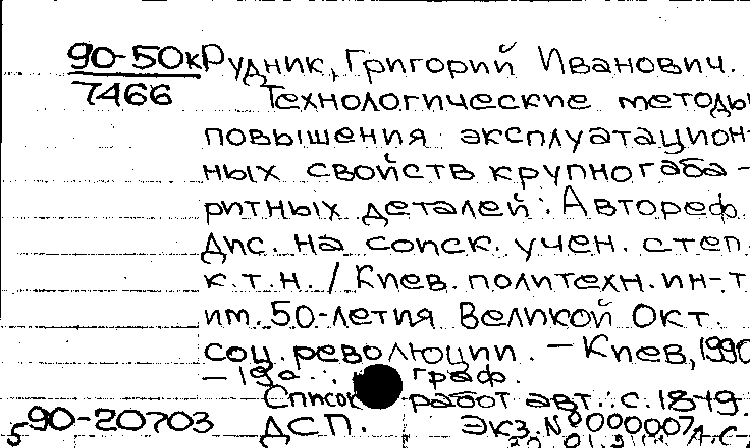 90-50к Рудник, Григорий Иванович.
7466 Технологические методы
повышения эксплуатацион-
ных свойств крупногаба-
ритных деталей: Автореф.
дис. на соиск. учен. степ.
к.т.н. / Киев. политехн. ин-т
им. 50-летия Великой Окт.
соц. революции. - Киев, 1990
- 19с.: граф.
Список работ авт.: с.18-19.
90-20703 ДСП. Экз.N°000007